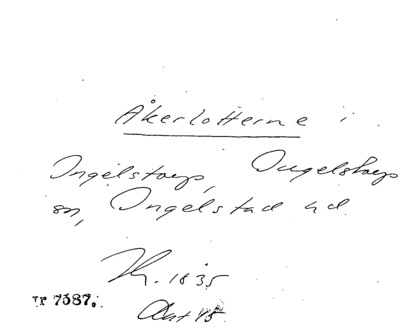 Åkerlotterne i
Ingelstorp, Ingelstorps
sn, Ingelstad hd.
1835
Akt 48
7387.